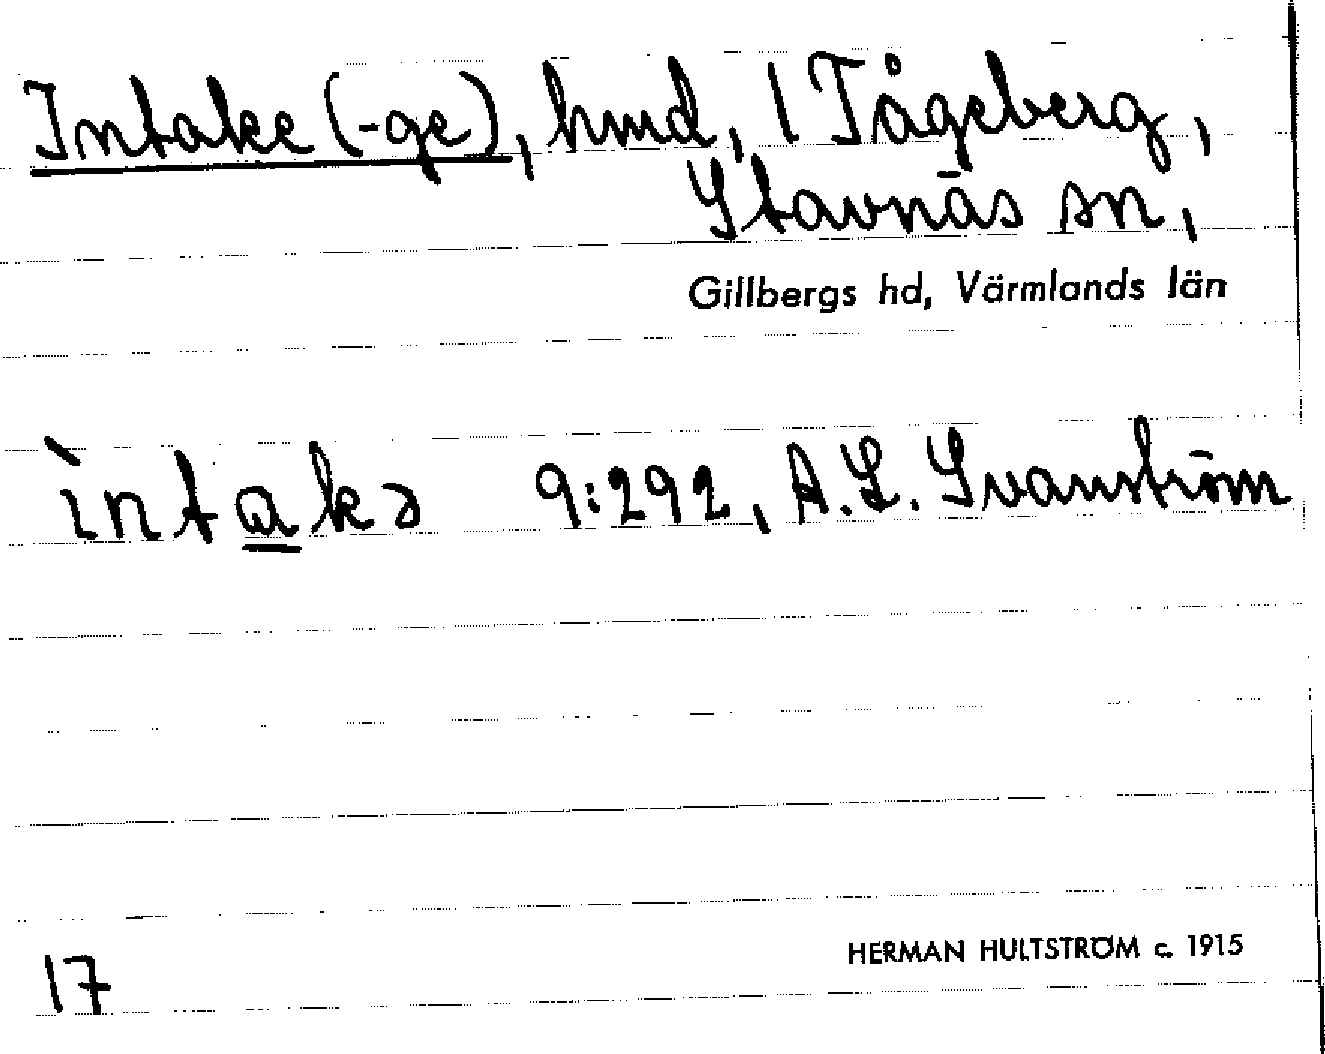 Intake (-ge), hmd, 1 Tågeberg,
Stavnäs sn,
Gillbergs hd, Värmlands län
ìntakə 9:292, A.L. Svanström
HERMAN HULTSTRÖM c. 1915
17